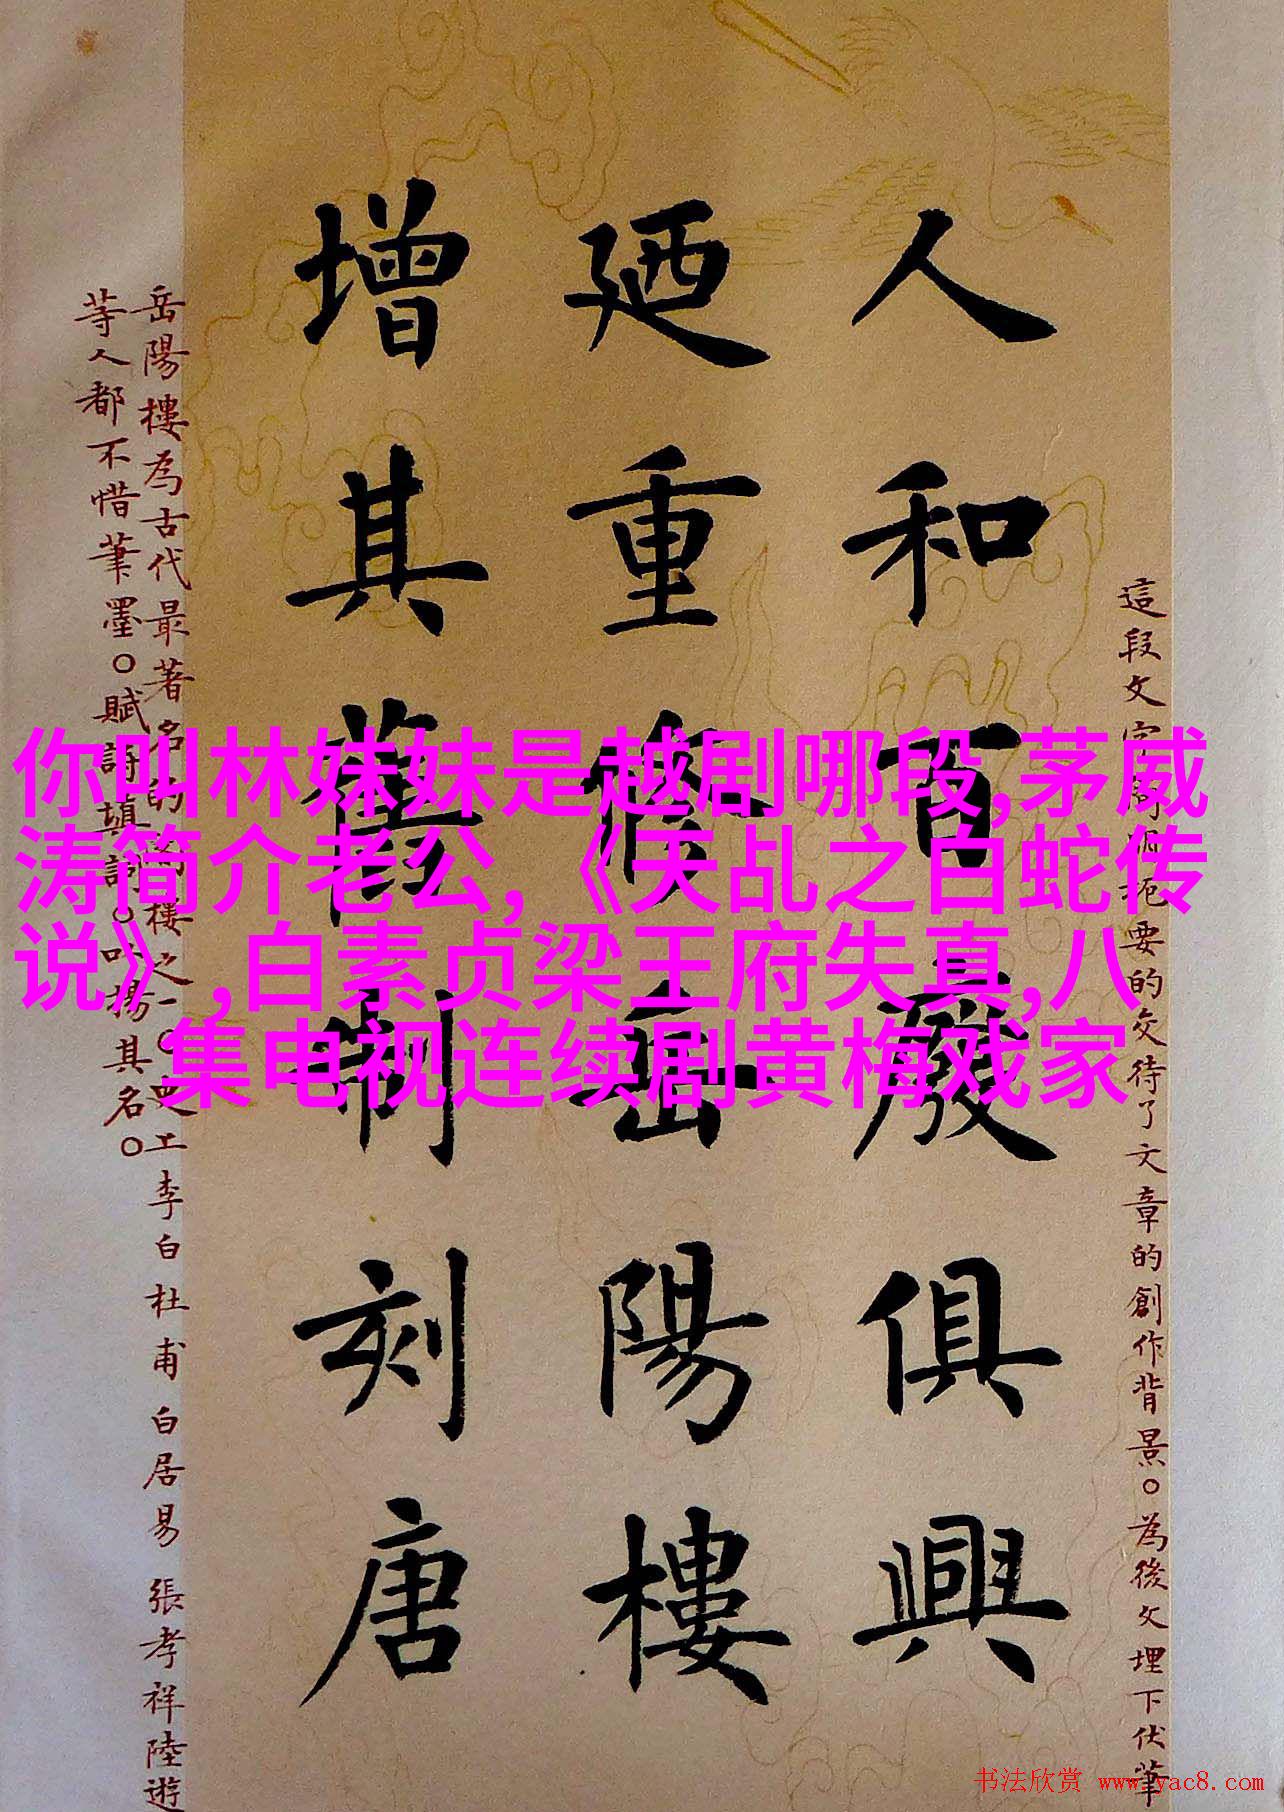 人和百廢俱興
廼重修岳陽樓
增其舊制刻唐
這段文字
要的交待了文章的創作背景。為後文埋下伏筆
岳陽樓為古代最著名的
樓之一。
工李白杜甫白居易張孝祥陸游
等人都不惜筆墨。賦詩填詞。
揚其名。
你叫林妹妹是越剧哪段,茅威
涛简介老公,《天乩之白蛇传
说》,白素贞梁王府失真,八
集电视连续剧黄梅戏家
书法欣赏 www.yac8.com